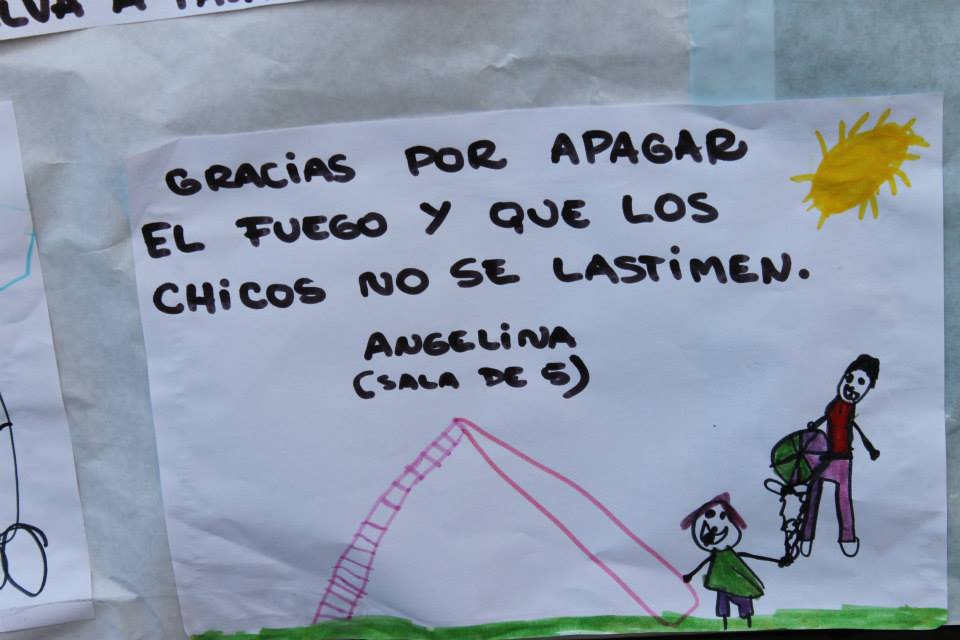 GRACiAS POR APAGAR
EL FUEGO Y QUE LOS
CHiCOS NO SE LASTiMEN.
ANGELiNA
(SALA DE 5)